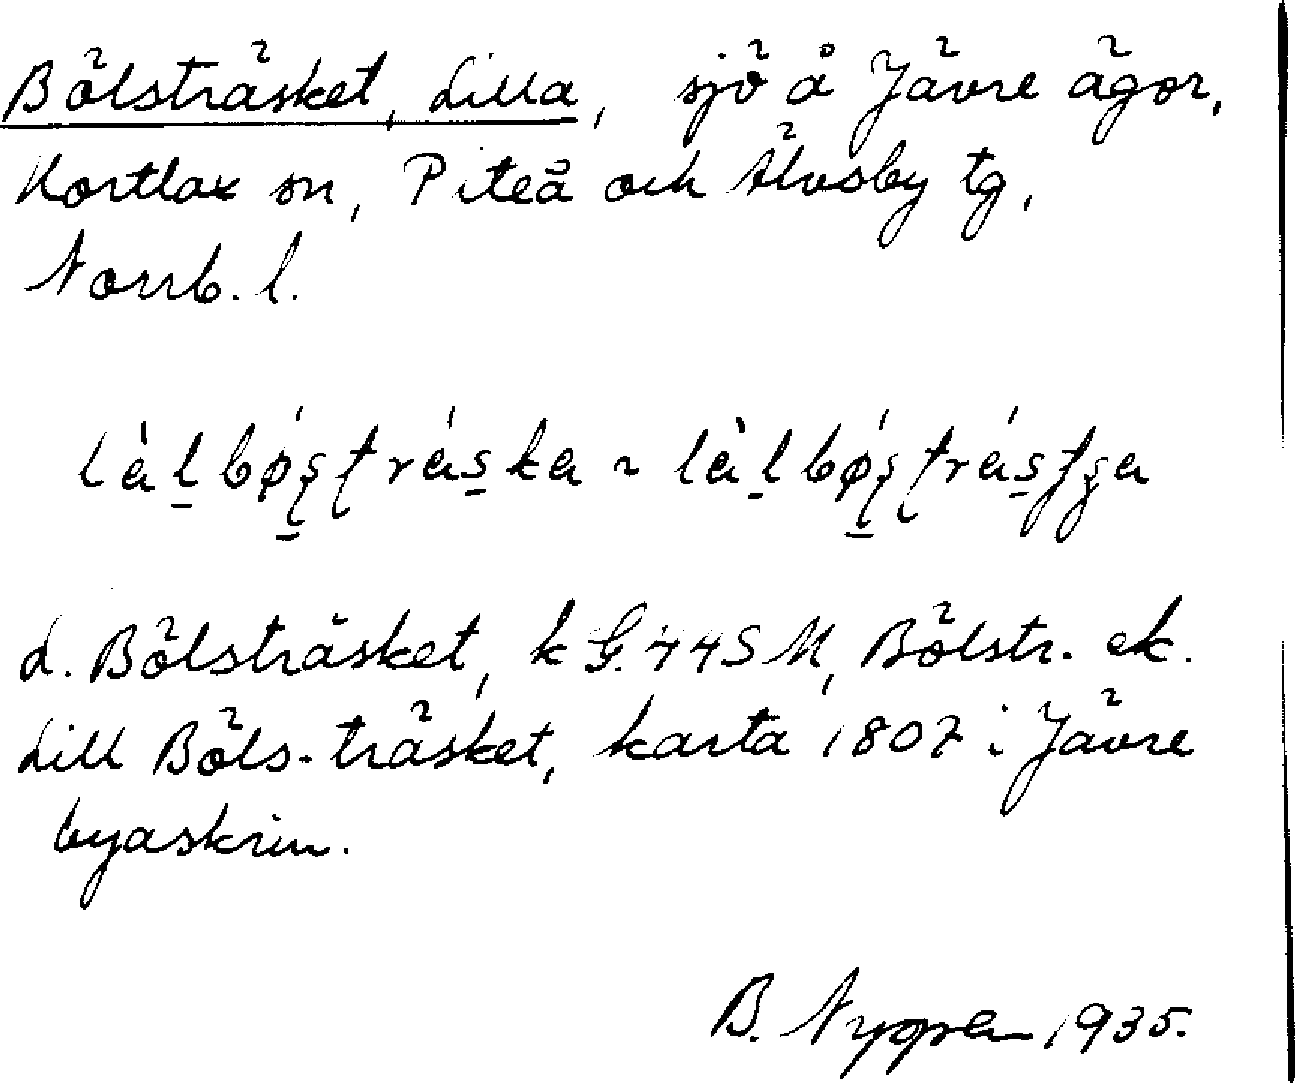 Bölsträsket, Lilla, sjö å Jävre ägor,
Hortlax sn, Piteå och Älvsby tg,
Norrb. l.
L. Bölsträsket, k G. 44 S M, Bölstr. ek.
Lill Böls-träsket, karta 1807 i Jävre
byaskrin.
B. Nygren 1935.